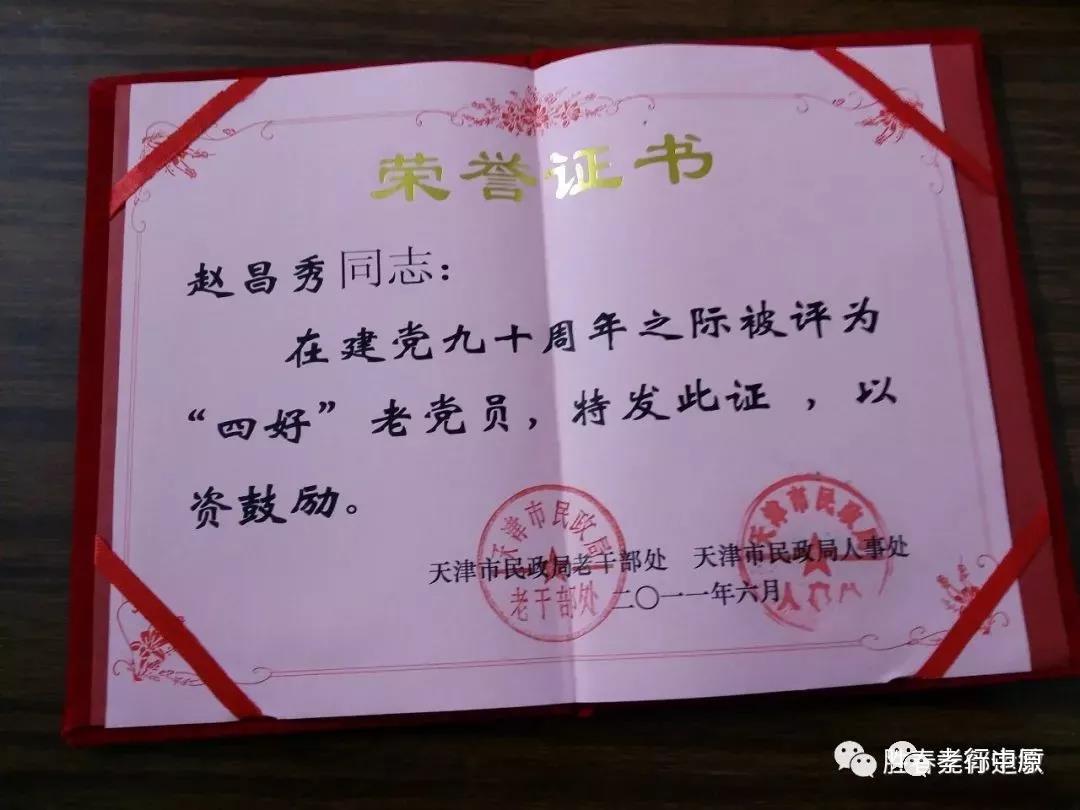 荣誉证书
赵昌秀同志：
在建党九十周年之际被评为
“四好”老党员，特发此证，以
资鼓励。
天津市民政局
老干部处
天津市民政局
天津市民政局老干部处 天津市民政局人事处
二〇一一年六月